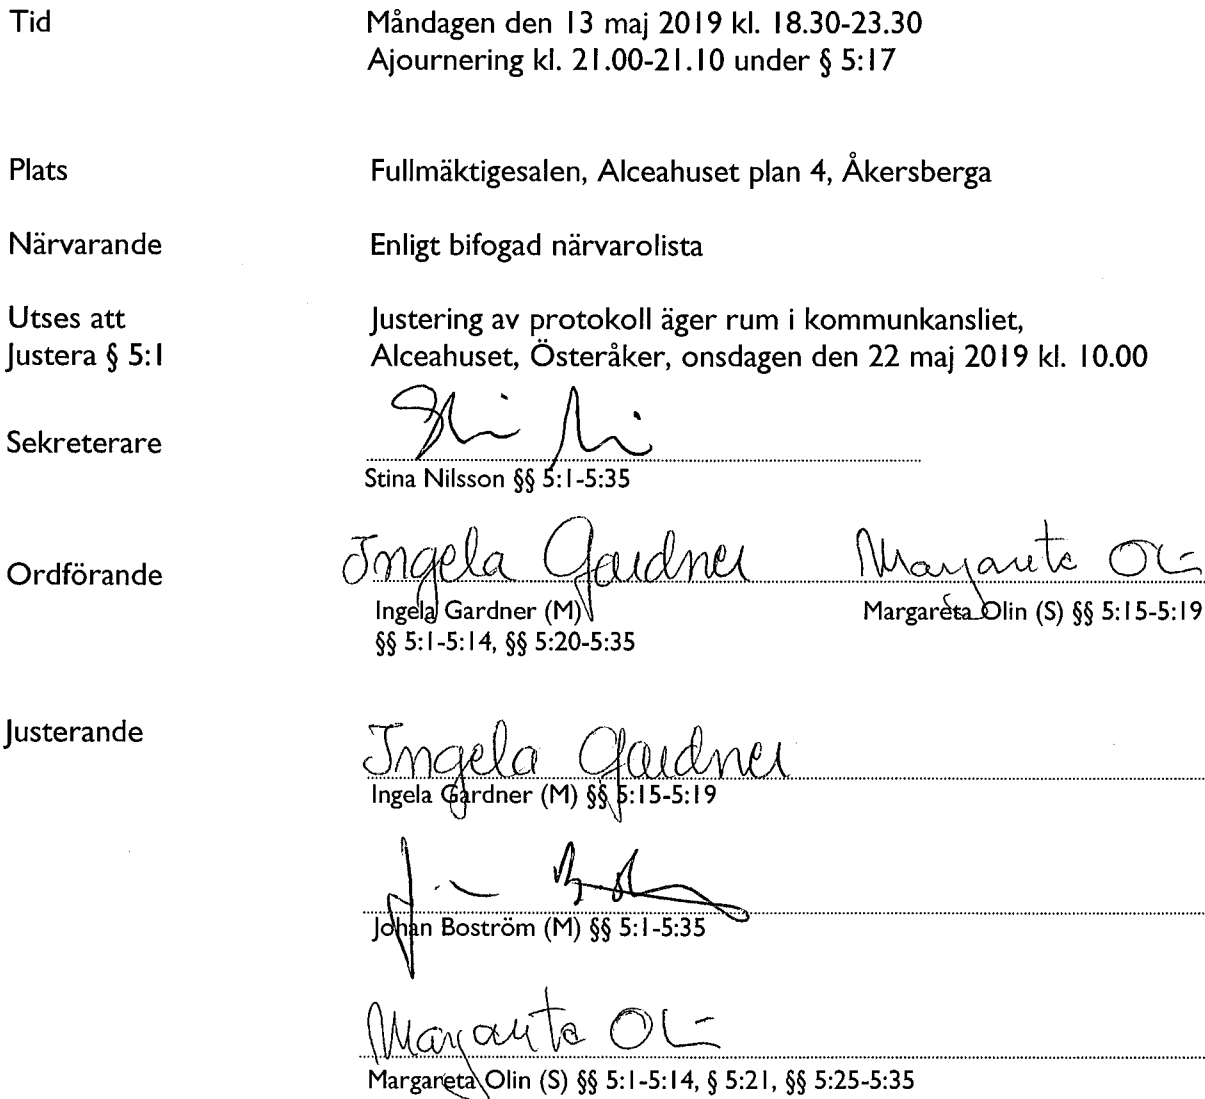 Tid Måndagen den 13 maj 2019 kl. 18.30-23.30
Ajournering kl. 21.00-21.10 under § 5:17
Plats Fullmäktigesalen, Alceahuset plan 4, Åkersberga
Närvarande Enligt bifogad närvarolista
Utses att Justering av protokoll äger rum i kommunkansliet,
Justera § 5:1 Alceahuset, Österåker, onsdagen den 22 maj 2019 kl. 10.00
Sekreterare
Stina Nilsson §§ 5:1-5:35
Ordförande Ingela Gardner Margareta Olin
Ingela Gardner (M) Margareta Olin (S) §§ 5:15-5:19
§§ 5:1-5:14, §§ 5:20-5:35
Justerande Ingela Gardner
Ingela Gardner (M) §§ 5:15-5:19
Johan Boström (M) §§ 5:1-5:35
Margareta Olin
Margareta Olin (S) §§ 5:1-5:14, § 5:21, §§ 5:25-5:35